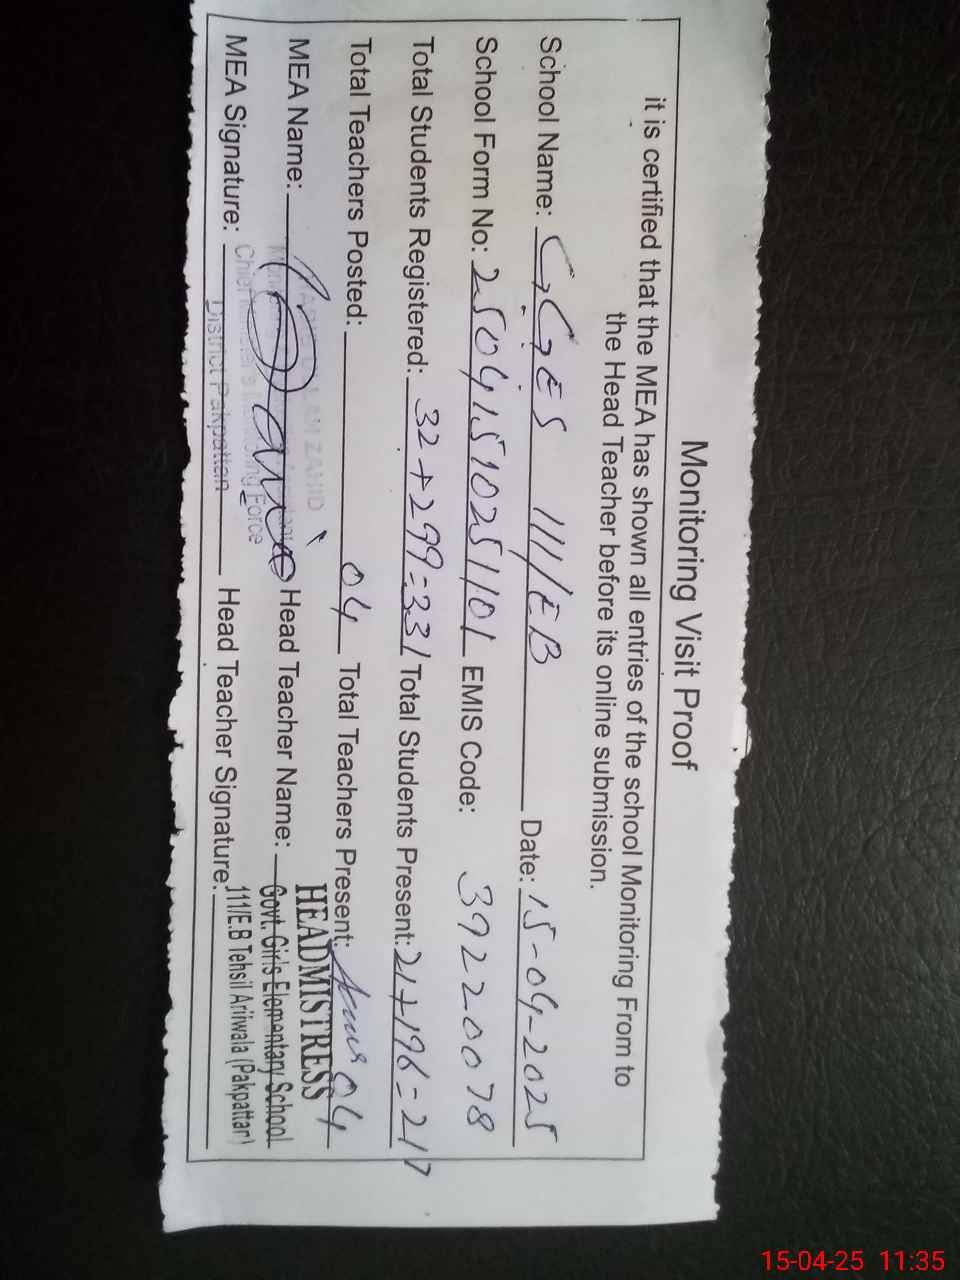 Monitoring Visit Proof
it is certified that the MEA has shown all entries of the school Monitoring From to
the Head Teacher before its online submission.
School Name: GGES 111/EB Date: 15-04-2025
School Form No: 25041510251101 EMIS Code: 39220078
Total Students Registered: 32+299=331 Total Students Present: 21+196=217
Total Teachers Posted: 04 Total Teachers Present: 04
HEADMISTRESS
MEA Name: Head Teacher Name: Govt. Girls Elementary School
ZAHID
Force
MEA Signature: Head Teacher Signature: 111/E.B Tehsil Arifwala (Pakpattan)
District Pakpattan
15-04-25 11:35